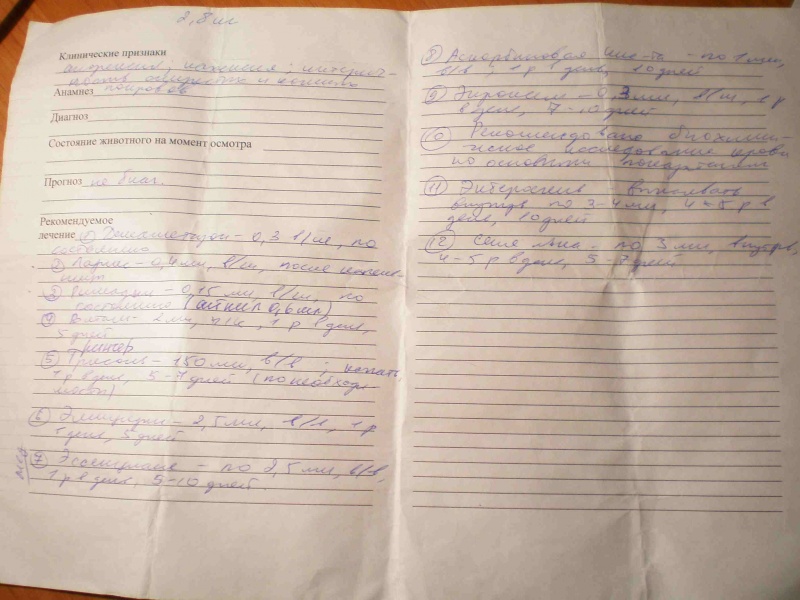 2,8 кг
Клинические признаки
анорексия; апатия; иктерич-
ность слизистых и кожных
Анамнез покровов
Диагноз
Состояние животного на момент осмотра
Прогноз не благ.
Рекомендуемое
лечение ① Дексаметазон – 0,3 в/м, по
состоянию
② 0,4 мл, в/м, после
③ 0,15 мл, в/м, по
состоянию (0,6 мл)
④ 2 мл, п/к, 1 р в день,
5 дней
⑤ Трисоль – 150 мл, в/в, капать,
1 р в день, 5-7 дней (по необходи-
мости)
⑥ – 2,5 мл, в/в, 1 р
в день, 5 дней
⑦ Эссенциале – по 2,5 мл, в/в,
1 р в день, 5-10 дней.
⑧ Аскорбиновая кис-та – по 1 мл,
в/в, 1 р в день, 10 дней
⑨ – 0,3 мл, в/м, 1 р
в день, 7-10 дней
⑩ Рекомендовано биохими-
ческое исследование крови
по основным показателям
⑪ Энтеросгель – выпаивать
внутрь по 3-4 мл, 4-5 р в
день, 10 дней
⑫ Семя льна – по 3 мл, внутрь,
4-5 р в день, 5-7 дней